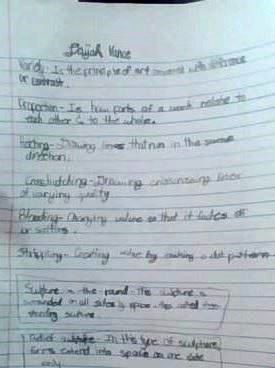 Dajjah Vance
Variety - Is the principle of art concerned with difference
or contrast.
Proportion - Is how parts of a work relate to
each other & to the whole.
Hatching - Drawing lines that run in the same
direction.
Crosshatching - Drawing crisscrossing lines
of varying
Blending - Changing value so that it fades
or
Stippling - Creating value by making a dot pattern
Sculpture in the round - This sculpture is
surrounded on all sides by space. Also called free
standing
Relief sculpture - In this type of sculpture
forms extend into space on one side
only.